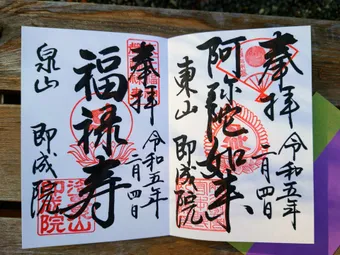 奉拝
阿弥陀如来
東山 即成院
令和五年
二月四日
奉拝
福禄寿
泉山 即成院
令和五年
二月四日